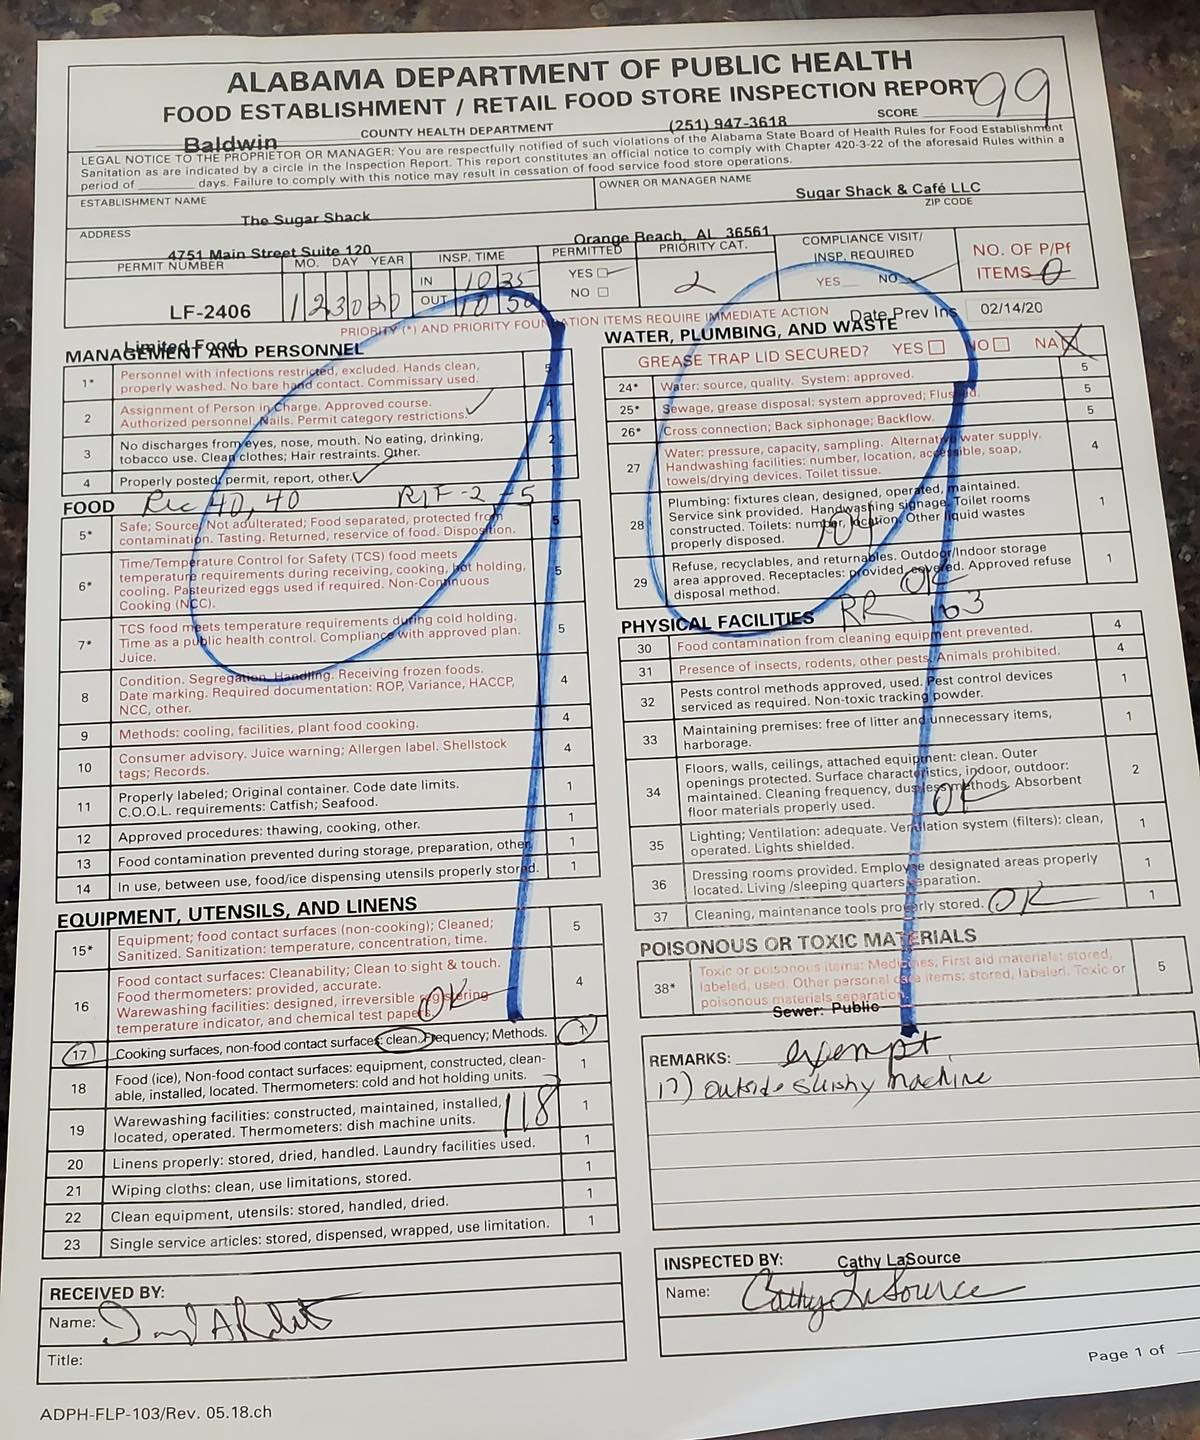 ALABAMA DEPARTMENT OF PUBLIC HEALTH
FOOD ESTABLISHMENT / RETAIL FOOD STORE INSPECTION REPORT
Baldwin COUNTY HEALTH DEPARTMENT (251) 947-3618 SCORE 99
LEGAL NOTICE TO THE PROPRIETOR OR MANAGER: You are respectfully notified of such violations of the Alabama State Board of Health Rules for Food Establishment
Sanitation as are indicated by a circle in the Inspection Report. This report constitutes an official notice to comply with Chapter 420-3-22 of the aforesaid Rules within a
period of ______ days. Failure to comply with this notice may result in cessation of food service food store operations.
ESTABLISHMENT NAME
The Sugar Shack
OWNER OR MANAGER NAME
Sugar Shack & Café LLC
ADDRESS
4751 Main Street Suite 120
Orange Beach, AL 36561
ZIP CODE
PERMIT NUMBER
LF-2406
MO. DAY YEAR
12 30 20
INSP. TIME
IN 10 35
OUT 10 50
PERMITTED
YES
NO
PRIORITY CAT.
2
COMPLIANCE VISIT/
INSP. REQUIRED
YES NO
NO. OF P/Pf
ITEMS 0
PRIORITY (*) AND PRIORITY FOUNDATION ITEMS REQUIRE IMMEDIATE ACTION
Date Prev Ins 02/14/20
Limited Food
MANAGEMENT AND PERSONNEL
1* Personnel with infections restricted, excluded. Hands clean, 5
properly washed. No bare hand contact. Commissary used.
2 Assignment of Person in Charge. Approved course. 4
Authorized personnel. Nails. Permit category restrictions.
3 No discharges from eyes, nose, mouth. No eating, drinking, 2
tobacco use. Clean clothes; Hair restraints. Other.
4 Properly posted: permit, report, other. 1
FOOD 40, 40
5* Safe; Source; Not adulterated; Food separated, protected from 5
contamination. Tasting. Returned, reservice of food. Disposition.
6* Time/Temperature Control for Safety (TCS) food meets 5
temperature requirements during receiving, cooking, hot holding,
cooling. Pasteurized eggs used if required. Non-Continuous
Cooking (NCC).
7* TCS food meets temperature requirements during cold holding. 5
Time as a public health control. Compliance with approved plan.
Juice.
8 Condition. Segregation. Handling. Receiving frozen foods. 4
Date marking. Required documentation: ROP, Variance, HACCP,
NCC, other.
9 Methods: cooling, facilities, plant food cooking. 4
10 Consumer advisory. Juice warning; Allergen label. Shellstock 4
tags; Records.
11 Properly labeled; Original container. Code date limits. 1
C.O.O.L. requirements: Catfish; Seafood.
12 Approved procedures: thawing, cooking, other. 1
13 Food contamination prevented during storage, preparation, other. 1
14 In use, between use, food/ice dispensing utensils properly stored. 1
EQUIPMENT, UTENSILS, AND LINENS
15* Equipment; food contact surfaces (non-cooking); Cleaned; 5
Sanitized. Sanitization: temperature, concentration, time.
16 Food contact surfaces: Cleanability; Clean to sight & touch. 4
Food thermometers: provided, accurate.
Warewashing facilities: designed, irreversible registering
temperature indicator, and chemical test papers. OK
17 Cooking surfaces, non-food contact surfaces: clean. Frequency; Methods. 1
18 Food (ice), Non-food contact surfaces: equipment, constructed, clean- 1
able, installed, located. Thermometers: cold and hot holding units.
19 Warewashing facilities: constructed, maintained, installed, 118 1
located, operated. Thermometers: dish machine units.
20 Linens properly: stored, dried, handled. Laundry facilities used. 1
21 Wiping cloths: clean, use limitations, stored. 1
22 Clean equipment, utensils: stored, handled, dried. 1
23 Single service articles: stored, dispensed, wrapped, use limitation. 1
RECEIVED BY:
Name:
Title:
ADPH-FLP-103/Rev. 05.18.ch
WATER, PLUMBING, AND WASTE
GREASE TRAP LID SECURED? YES NO NA
24* Water: source, quality. System: approved. 5
25* Sewage, grease disposal: system approved; Flushed. 5
26* Cross connection; Back siphonage; Backflow. 5
27 Water: pressure, capacity, sampling. Alternative water supply. 4
Handwashing facilities: number, location, accessible, soap,
towels/drying devices. Toilet tissue.
28 Plumbing: fixtures clean, designed, operated, maintained. 1
Service sink provided. Handwashing signage. Toilet rooms
constructed. Toilets: number, location. Other liquid wastes
properly disposed.
29 Refuse, recyclables, and returnables. Outdoor/Indoor storage 1
area approved. Receptacles: provided, covered. Approved refuse
disposal method. OK
PHYSICAL FACILITIES RR 103
30 Food contamination from cleaning equipment prevented. 4
31 Presence of insects, rodents, other pests. Animals prohibited. 4
32 Pests control methods approved, used. Pest control devices 1
serviced as required. Non-toxic tracking powder.
33 Maintaining premises: free of litter and unnecessary items, 1
harborage.
34 Floors, walls, ceilings, attached equipment: clean. Outer 2
openings protected. Surface characteristics, indoor, outdoor:
maintained. Cleaning frequency, dustless methods. Absorbent
floor materials properly used. OK
35 Lighting; Ventilation: adequate. Ventilation system (filters): clean, 1
operated. Lights shielded.
36 Dressing rooms provided. Employee designated areas properly 1
located. Living /sleeping quarters separation.
37 Cleaning, maintenance tools properly stored. OK 1
POISONOUS OR TOXIC MATERIALS
38* Toxic or poisonous items: Medicines; First aid materials: stored, 5
labeled, used. Other personal care items: stored, labeled. Toxic or
poisonous materials separation.
Sewer: Public
REMARKS: exempt
17) outside slushy machine
INSPECTED BY: Cathy LaSource
Name: Cathy LaSource
Page 1 of